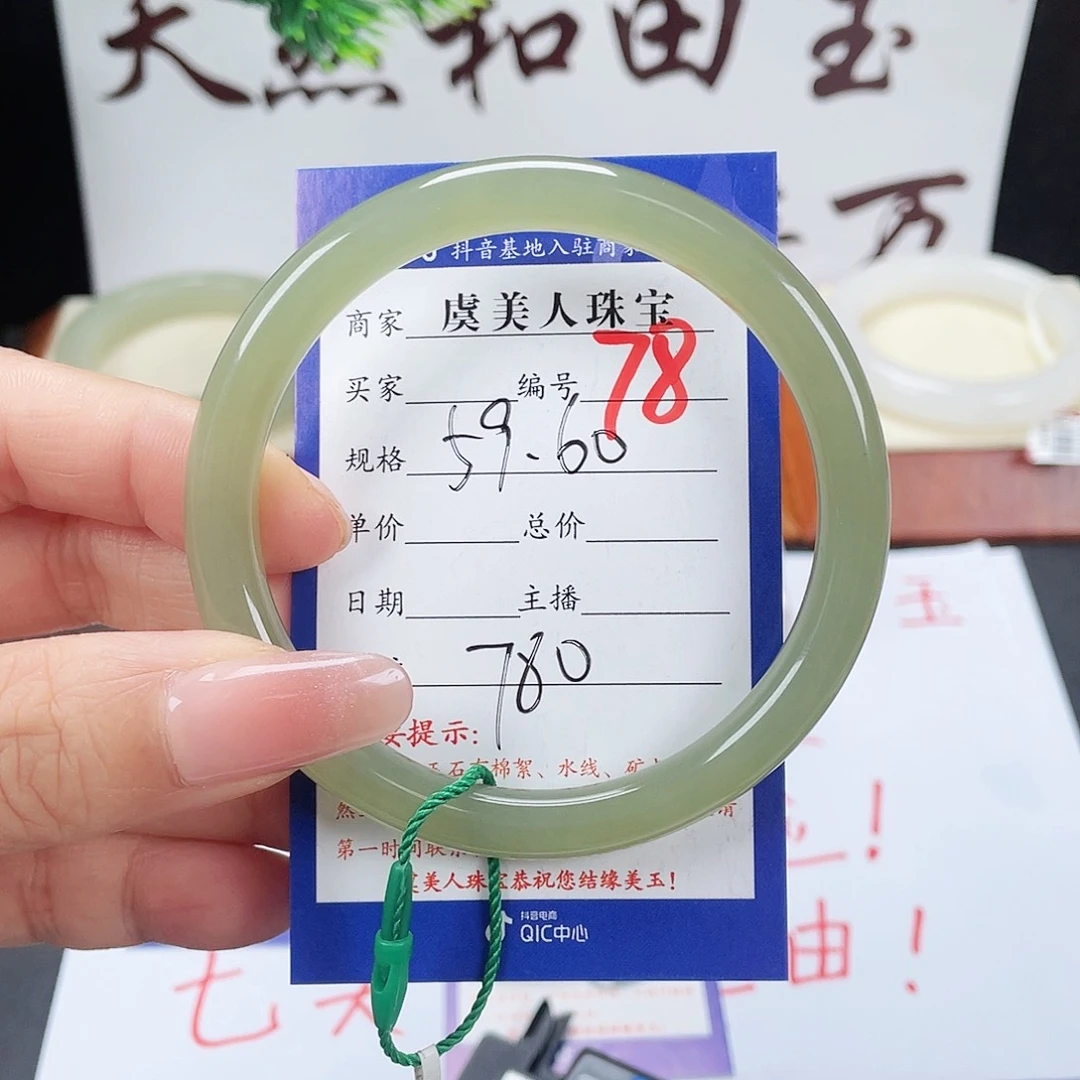 天然和田玉
万
抖音基地入驻商家
商家 虞美人珠宝
买家 编号 78
规格 59.60
单价 总价
日期 主播
780
要提示:
玉石有棉絮、水线、矿
然
第一时间联系
虞美人珠宝恭祝您结缘美玉!
抖音电商
QIC中心
玉
!
七天 由!